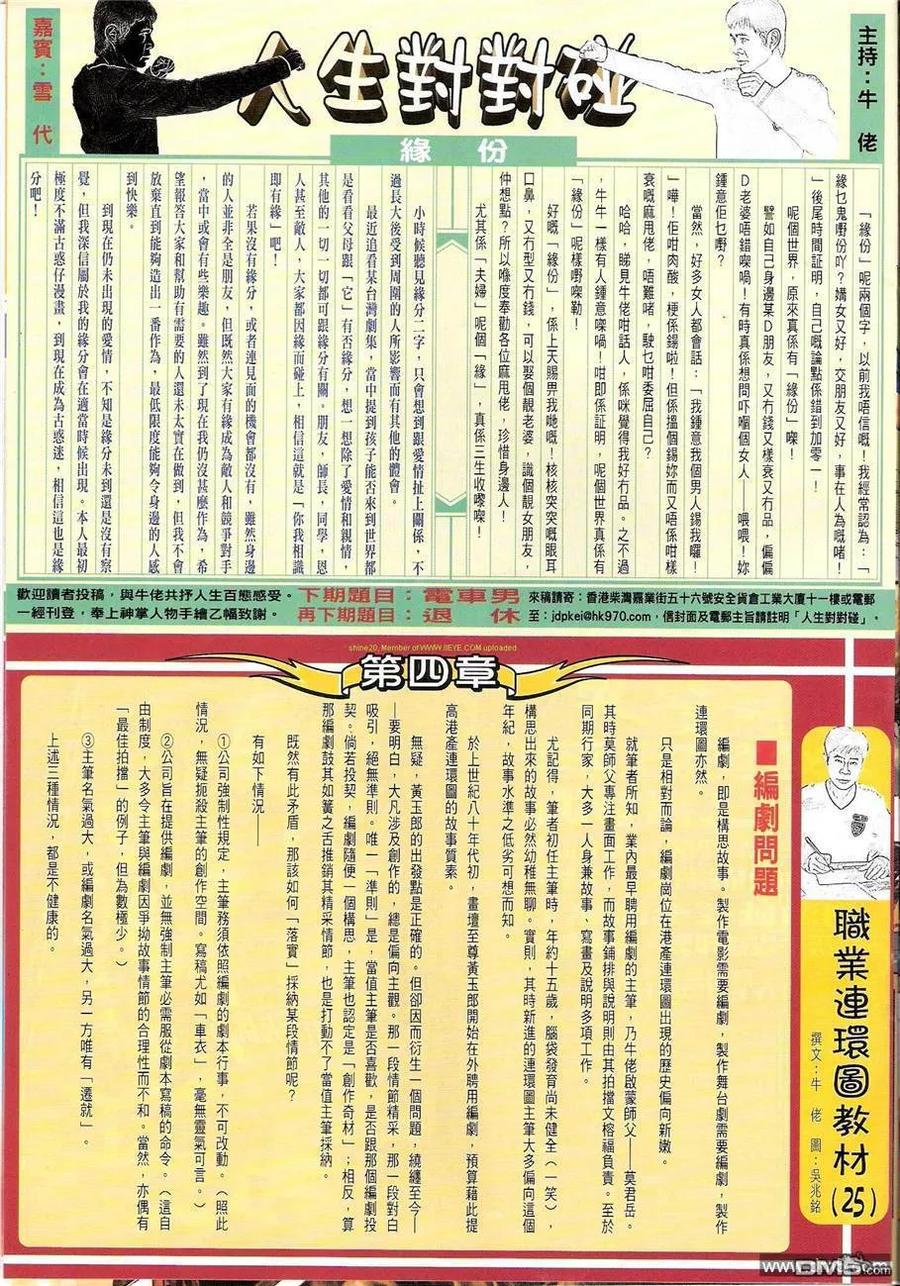 人生對對碰
主持：牛佬
嘉賓：雪代
緣份
「緣份」呢兩個字，以前我唔信嘅！我經常認為：「
緣乜鬼嘢份吖？媾女又好，交朋友又好，事在人為嘅啫！
」後尾時間証明，自己嘅論點係錯到加零一！
呢個世界，原來真係有「緣份」㗎！
譬如自己身邊某D朋友，又冇錢又樣衰又冇品，偏偏
D老婆唔錯㗎喎！有時真係想問吓嗰個女人──喂喂！妳
鍾意佢乜嘢？
當然，好多女人都會話：「我鍾意我個男人錫我囉！
」嘩！佢咁肉酸，梗係錫啦！但係搵個錫妳而又唔係咁樣
衰嘅麻甩佬，唔難啫，駛乜咁委屈自己？
哈哈，睇見牛佬咁話人，係咪覺得我好冇品。之不過
，牛牛一樣有人鍾意㗎喎！咁即係証明，呢個世界真係有
「緣份」呢樣嘢㗎嘞！
好嘅「緣份」，係上天賜畀我哋嘅！核核突突嘅眼耳
口鼻，又冇型又冇錢，可以娶個靚老婆，識個靚女朋友，
仲想點？所以喺度奉勸各位麻甩佬，珍惜身邊人！
尤其係「夫婦」呢個「緣」，真係三生收嚟㗎！
小時候聽見緣分二字，只會想到跟愛情扯上關係，不
過長大後受到周圍的人所影響而有其他的體會。
最近追看某台灣劇集，當中提到孩子能否來到世界都
是看看父母跟「它」有否緣分，想一想除了愛情和親情，
其他的一切一切都可跟緣分有關。朋友，師長，同學，恩
人甚至敵人，大家都因緣而碰上，相信這就是「你我相識
即有緣」吧！
若果沒有緣分，或者連見面的機會都沒有，雖然身邊
的人並非全是朋友，但既然大家有緣成為敵人和競爭對手
，當中或會有些樂趣。雖然到了現在我仍沒甚麼作為，希
望報答大家和幫助有需要的人還未太實在做到，但我不會
放棄直到能夠造出一番作為，最低限度能夠令身邊的人感
到快樂。
到現在仍未出現的愛情，不知是緣分未到還是沒有察
覺，但我深信屬於我的緣分會在適當時候出現。本人最初
極度不滿古惑仔漫畫，到現在成為古惑迷，相信這也是緣
分吧！
歡迎讀者投稿，與牛佬共抒人生百態感受。
一經刊登，奉上神掌人物手繪乙幅致謝。
下期題目：電車男
再下期題目：退休
來稿請寄：香港柴灣嘉業街五十六號安全貨倉工業大廈十一樓或電郵
至：jdpkei@hk970.com，信封面及電郵主旨請註明「人生對對碰」。
shine20, Member of WWW.IIEYE.COM uploaded
第四章
職業連環圖教材(25)
撰文：牛佬　圖：吳兆銘
■編劇問題
編劇，即是構思故事。製作電影需要編劇，製作舞台劇需要編劇，製作
連環圖亦然。
只是相對而論，編劇崗位在港產連環圖出現的歷史偏向新嫩。
就筆者所知，業內最早聘用編劇的主筆，乃牛佬啟蒙師父──莫君岳。
其時莫師父專注畫面工作，而故事鋪排與說明則由其拍擋文榕福負責。至於
同期行家，大多一人身兼故事、寫畫及說明多項工作。
尤記得，筆者初任主筆時，年約十五歲，腦袋發育尚未健全（一笑），
構思出來的故事必然幼稚無聊。實則，其時新進的連環圖主筆大多偏向這個
年紀，故事水準之低劣可想而知。
於上世紀八十年代初，畫壇至尊黃玉郎開始在外聘用編劇，預算藉此提
高港產連環圖的故事質素。
無疑，黃玉郎的出發點是正確的。但卻因而衍生一個問題，繞纏至今─
─要明白，大凡涉及創作的，總是偏向主觀。那一段情節精采，那一段對白
吸引，絕無準則。唯一「準則」是，當值主筆是否喜歡，是否跟那個編劇投
契。倘若投契，編劇隨便一個構思，主筆也認定是「創作奇材」；相反，算
那編劇鼓其如簧之舌推銷其精采情節，也是打動不了當值主筆採納。
既然有此矛盾，那該如何「落實」採納某段情節呢？
有如下情況──
①公司強制性規定，主筆務須依照編劇的劇本行事，不可改動。（照此
情況，無疑扼殺主筆的創作空間。寫稿尤如「車衣」，毫無靈氣可言。）
②公司旨在提供編劇，並無強制主筆必需服從劇本寫稿的命令。（這自
由制度，大多令主筆與編劇因爭拗故事情節的合理性而不和。當然，亦偶有
「最佳拍擋」的例子，但為數極少。）
③主筆名氣過大，或編劇名氣過大，另一方唯有「遷就」。
上述三種情況，都是不健康的。